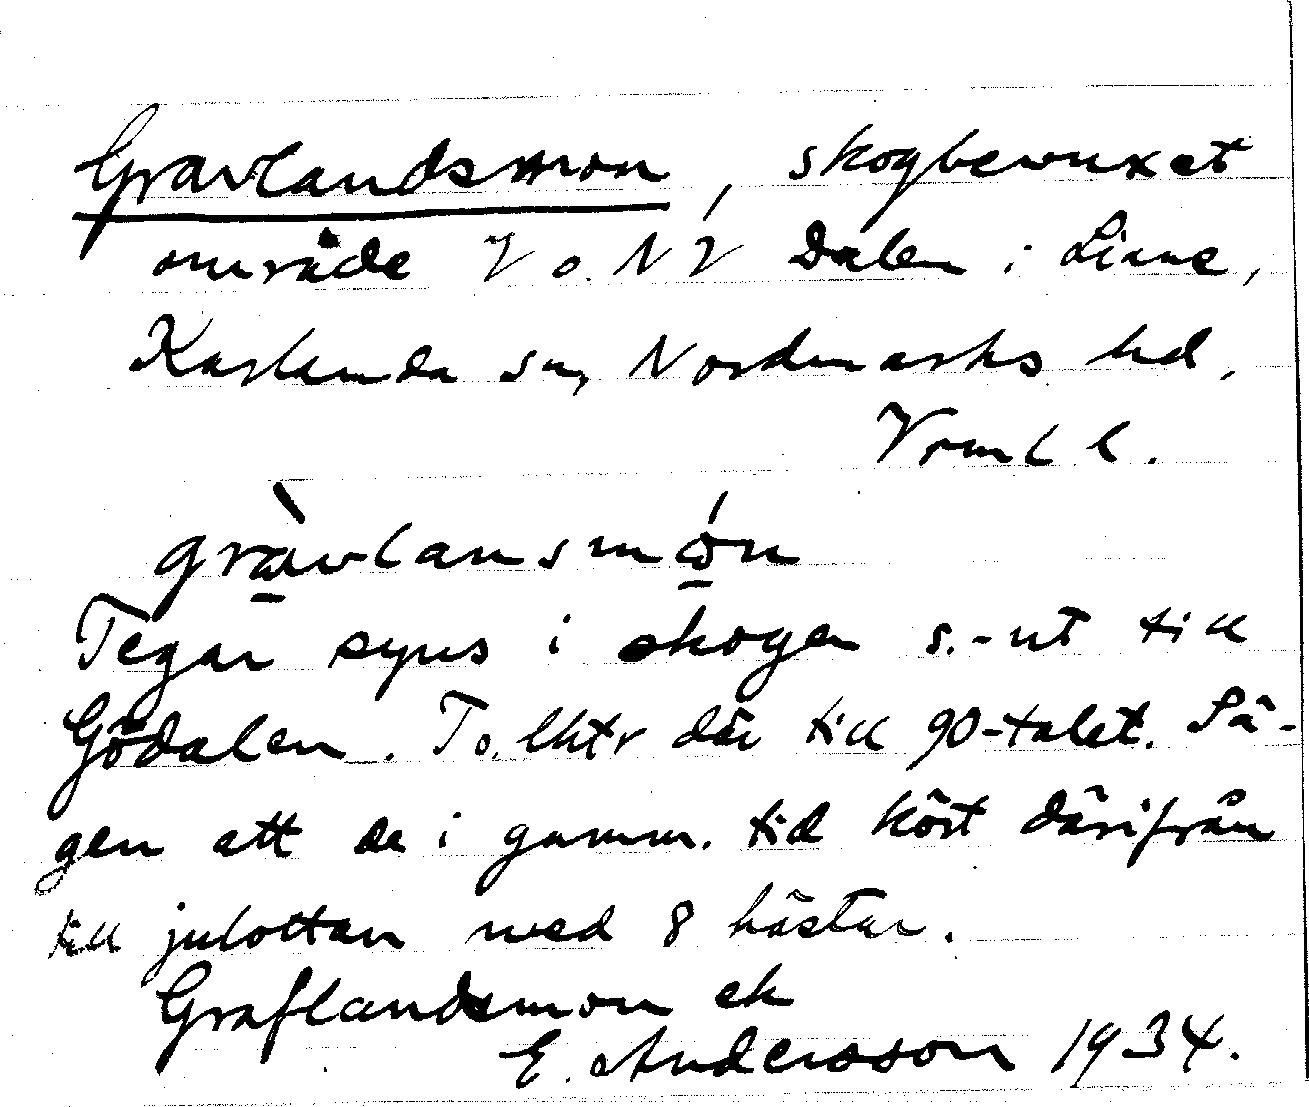 Gravlandsmon, skogbevuxet
område V o. NV Dalen i Liane,
Karlanda sn, Nordmarks hd,
Vrml l.
gràvlansmón
Tegar syns i skogen s.-ut till
Gödalen. To. lhtr där till 90-talet. Sä-
gen att de i gamm. tid kört därifrån
till julottan med 8 hästar.
Graflandsmon ek
E. Andersson 1934.